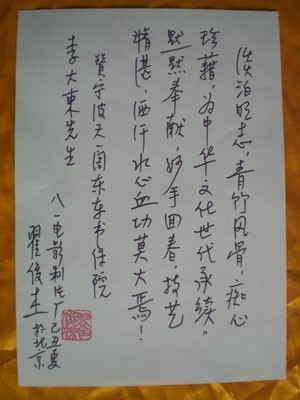 淡泊明志,青竹风骨,痴心
珍籍,为中华文化世代承续。
默默奉献,妙手回春,技艺
精湛,洒汗水心血功莫大焉!
赞宁波天一阁东东书保院
李大東先生
八一电影制片厂己丑夏
翟俊杰於北京